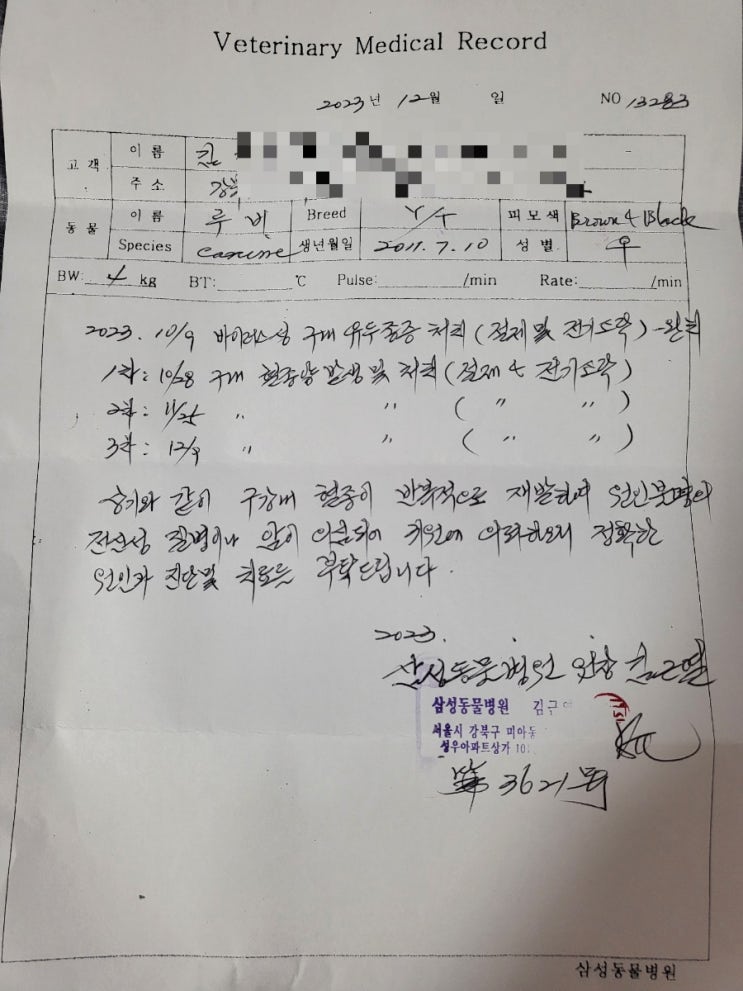 Veterinary Medical Record
2023년 12월 일 NO 13283
고객 이름 김
주소 강
동물 이름 루비 Breed Y/T 피모색 Brown & Black
Species canine 생년월일 2011. 7. 10 성별 우
BW: 4 kg BT: ℃ Pulse: /min Rate: /min
2023. 10/9 바이러스성 구내 유두종증 처치 (절제 및 전기소락) - 완치
1차: 10/28 구내 혈종양 발생 및 처치 (절제 & 전기소락)
2차: 11/25 〃 〃 ( 〃 〃 )
3차: 12/9 〃 〃 ( 〃 〃 )
상기와 같이 구강내 혈종이 반복적으로 재발하며 원인불명의
전신성 질병이나 암이 의심되어 귀원에 의뢰하오니 정확한
원인과 진단 및 치료를 부탁드립니다.
2023.
삼성동물병원 원장 김근열
삼성동물병원 김근
서울시 강북구 미아동
성우아파트상가 10
第 3621호
삼성동물병원